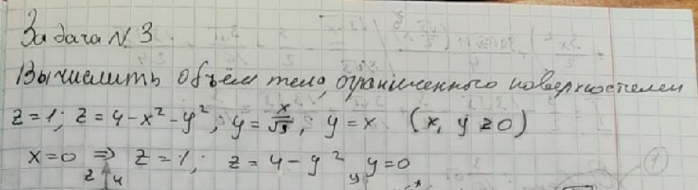 Задача N 3
Вычислить объём тела, ограниченного поверхностями
z=1; z=4-x²-y²; y=x/√3; y=x (x, y ≥0)
x=0 ⇒ z=1; z=4-y² y=0
z 4 y
1